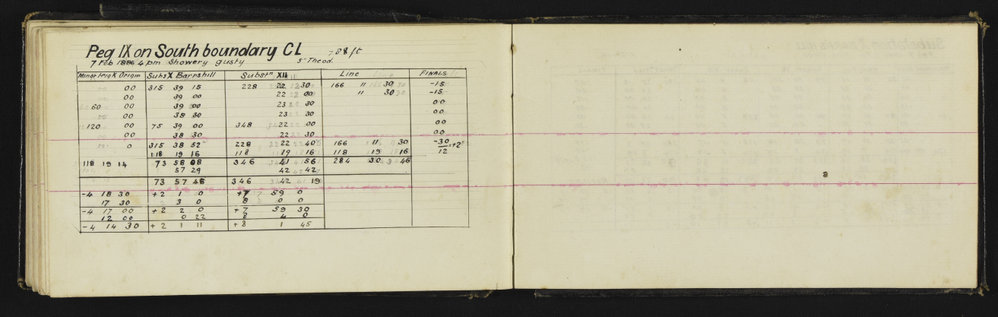 Peg IX on South boundary CL
7 Feb 1886 4pm Showery gusty 5" Theod.
Origin Subs X Barnhill Substn XII Line FINALS
00 315 39 15 228 22 30 166 11 30 -15
00 39 00 22 00 11 30 -15
60 00 39 00 23 30 00
00 38 30 23 30 00
120 00 75 39 00 348 22 00 00
00 38 30 22 30 00
0 315 38 52 228 22 40 166 11 30 -30
118 19 16 118 19 16 118 19 16 12
118 19 14 73 58 08 346 41 56 284 30 46
57 29 42 42
73 57 48 346 42 19
-4 18 30 +2 1 0 +7 59 0
17 30 3 0 8 0 0
-4 17 00 +2 2 0 +7 59 30
12 00 0 22 2 4 0
-4 14 30 +2 1 11 +8 1 45